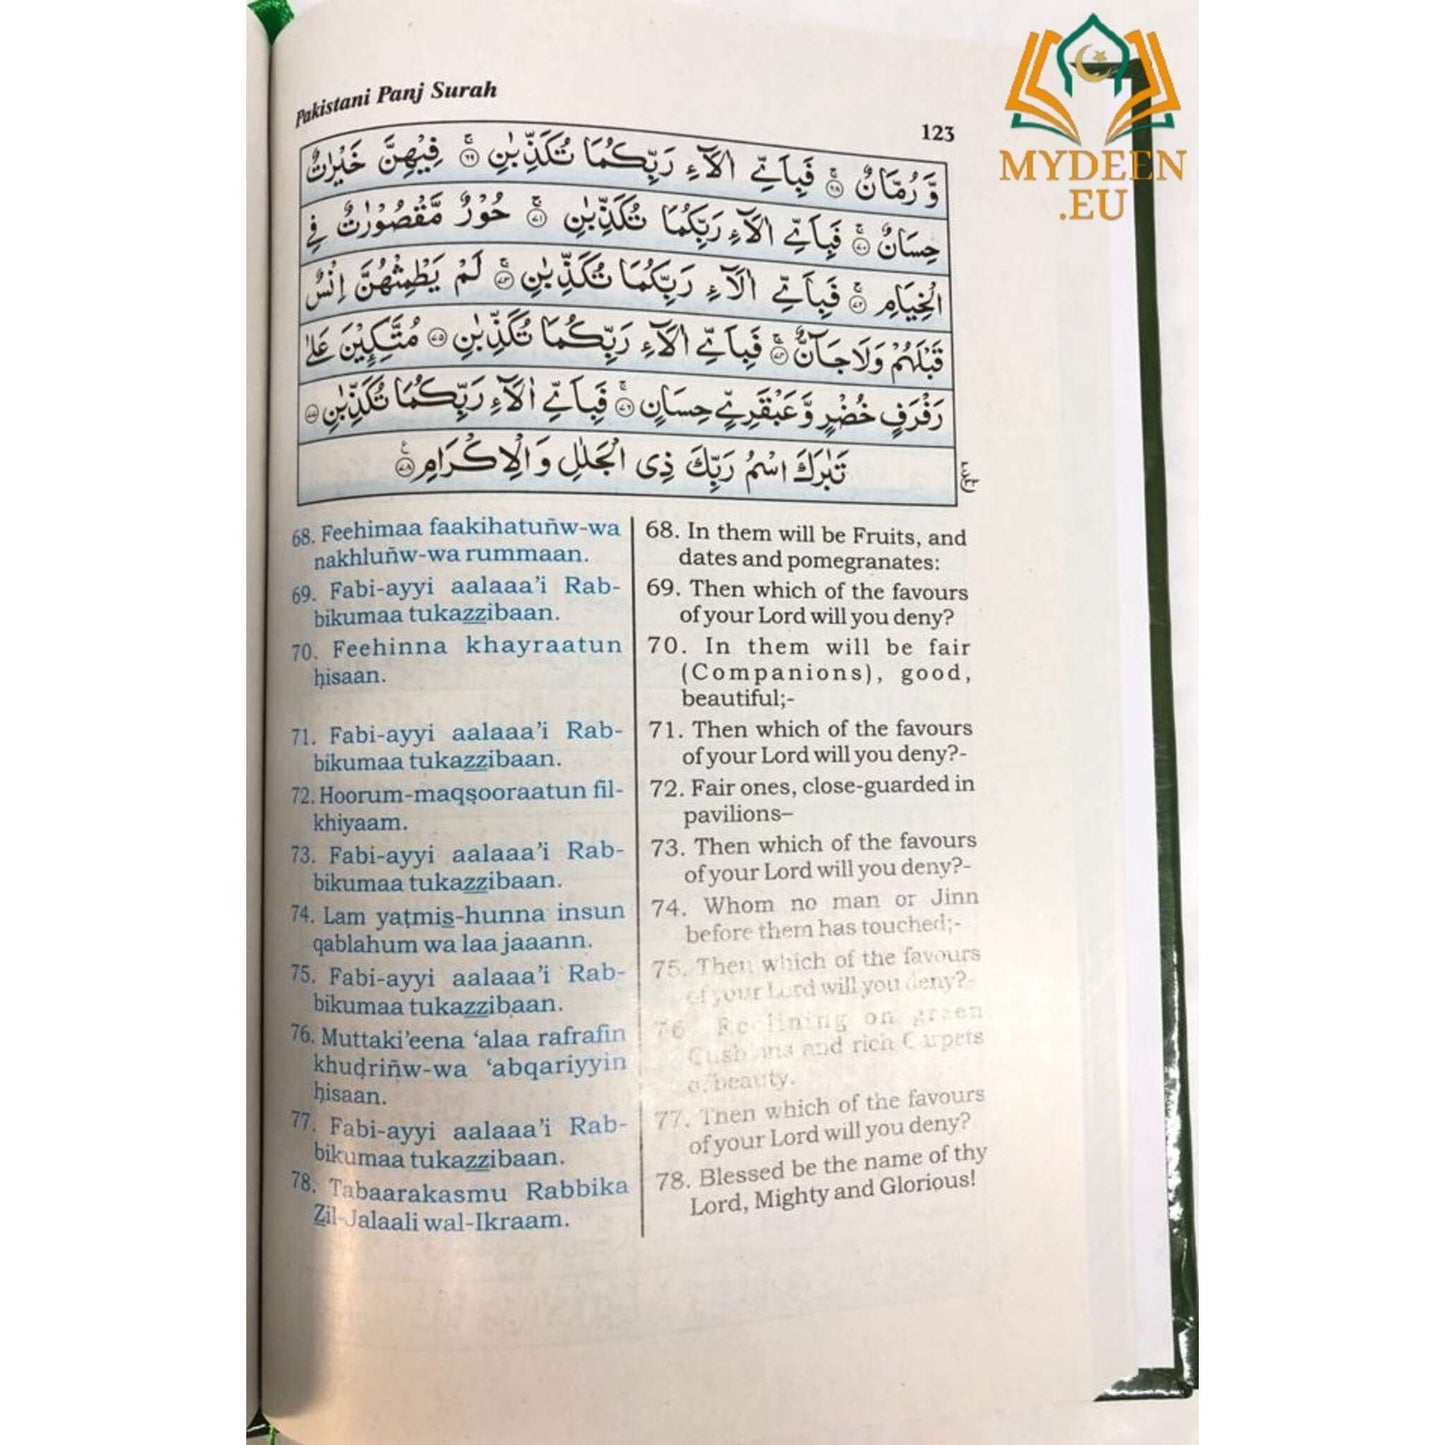 Pakistani Panj Surah
123
MYDEEN
.EU
وَّ رُمَّانٌ ۚ﴿۶۸﴾ فَبِاَیِّ اٰلَآءِ رَبِّكُمَا تُكَذِّبٰنِ ۚ﴿۶۹﴾ فِیْهِنَّ خَیْرٰتٌ
حِسَانٌ ۚ﴿۷۰﴾ فَبِاَیِّ اٰلَآءِ رَبِّكُمَا تُكَذِّبٰنِ ۚ﴿۷۱﴾ حُوْرٌ مَّقْصُوْرٰتٌ فِی
الْخِیَامِ ۚ﴿۷۲﴾ فَبِاَیِّ اٰلَآءِ رَبِّكُمَا تُكَذِّبٰنِ ۚ﴿۷۳﴾ لَمْ یَطْمِثْهُنَّ اِنْسٌ
قَبْلَهُمْ وَلَا جَآنٌّ ۚ﴿۷۴﴾ فَبِاَیِّ اٰلَآءِ رَبِّكُمَا تُكَذِّبٰنِ ﴿۷۵﴾ مُتَّكِـِٕیْنَ عَلٰی
رَفْرَفٍ خُضْرٍ وَّ عَبْقَرِیٍّ حِسَانٍ ۚ﴿۷۶﴾ فَبِاَیِّ اٰلَآءِ رَبِّكُمَا تُكَذِّبٰنِ ﴿۷۷﴾
تَبٰرَكَ اسْمُ رَبِّكَ ذِی الْجَلٰلِ وَ الْاِكْرَامِ ﴿۷۸﴾
68. Feehimaa faakihatuñw-wa
nakhluñw-wa rummaan.
69. Fabi-ayyi aalaaa’i Rab-
bikumaa tukazzibaan.
70. Feehinna khayraatun
ḥisaan.
71. Fabi-ayyi aalaaa’i Rab-
bikumaa tukazzibaan.
72. Hoorum-maqṣooraatun fil-
khiyaam.
73. Fabi-ayyi aalaaa’i Rab-
bikumaa tukazzibaan.
74. Lam yaṭmis-hunna insun
qablahum wa laa jaaann.
75. Fabi-ayyi aalaaa’i Rab-
bikumaa tukazzibaan.
76. Muttaki’eena ‘alaa rafrafin
khuḍriñw-wa ‘abqariyyin
ḥisaan.
77. Fabi-ayyi aalaaa’i Rab-
bikumaa tukazzibaan.
78. Tabaarakasmu Rabbika
Zil-Jalaali wal-Ikraam.
68. In them will be Fruits, and
dates and pomegranates:
69. Then which of the favours
of your Lord will you deny?
70. In them will be fair
(Companions), good,
beautiful;-
71. Then which of the favours
of your Lord will you deny?-
72. Fair ones, close-guarded in
pavilions–
73. Then which of the favours
of your Lord will you deny?-
74. Whom no man or Jinn
before them has touched;-
75. Then which of the favours
of your Lord will you deny?-
76. Reclining on green
Cushions and rich Carpets
of beauty.
77. Then which of the favours
of your Lord will you deny?
78. Blessed be the name of thy
Lord, Mighty and Glorious!